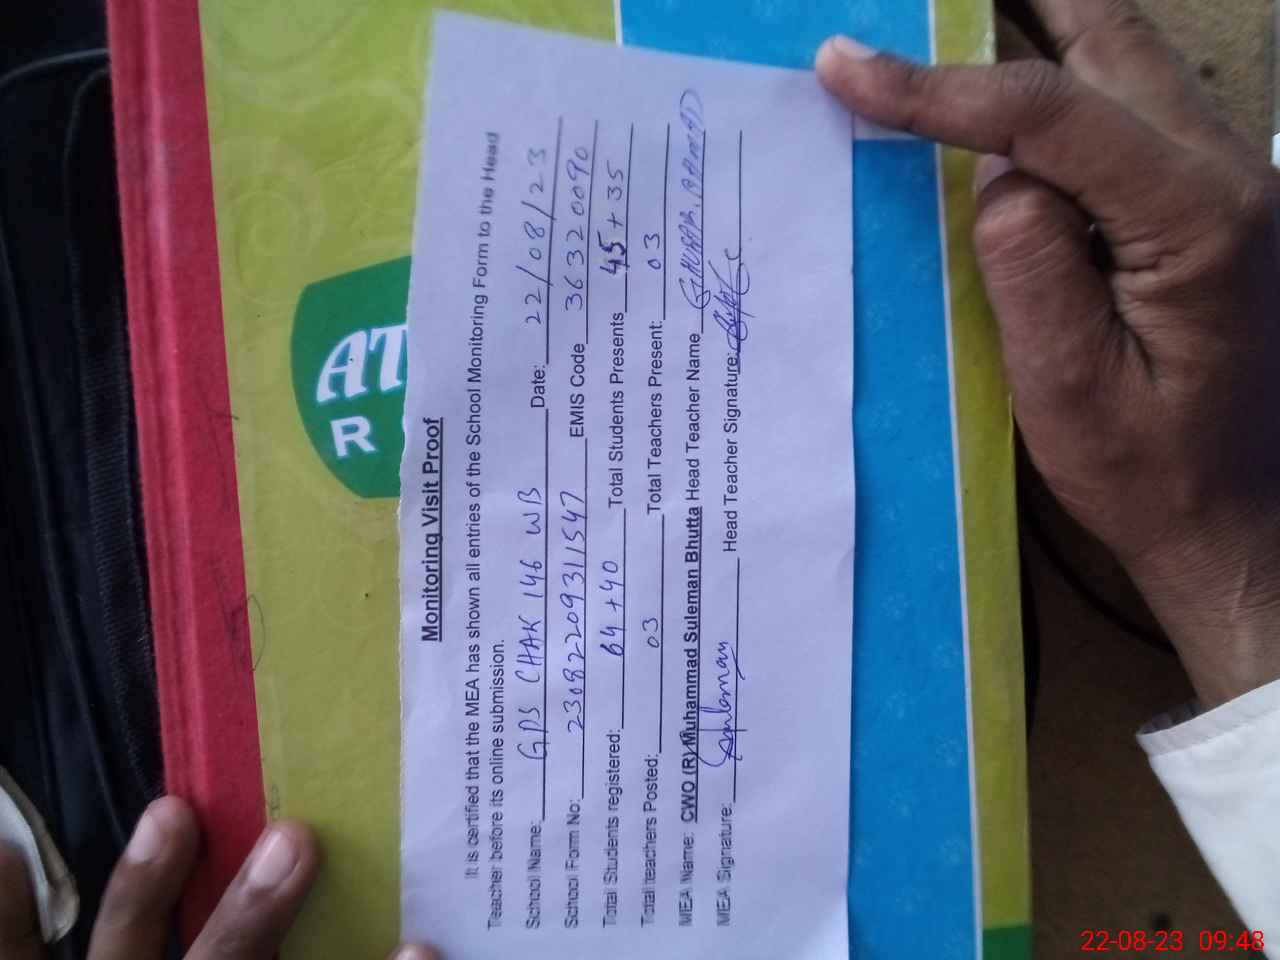 AT
R
Monitoring Visit Proof
It is certified that the MEA has shown all entries of the School Monitoring Form to the Head
Teacher before its online submission.
School Name: GPS CHAK 146 WB Date: 22/08/23
School Form No: 23082209311547 EMIS Code 36320090
Total Students registered: 64+40 Total Students Presents 45+35
Total teachers Posted: 03 Total Teachers Present: 03
MEA Name: CWO (R) Muhammad Suleman Bhutta Head Teacher Name GAUHAR. AHMAD
MEA Signature: Suleman Head Teacher Signature:
22-08-23 09:48